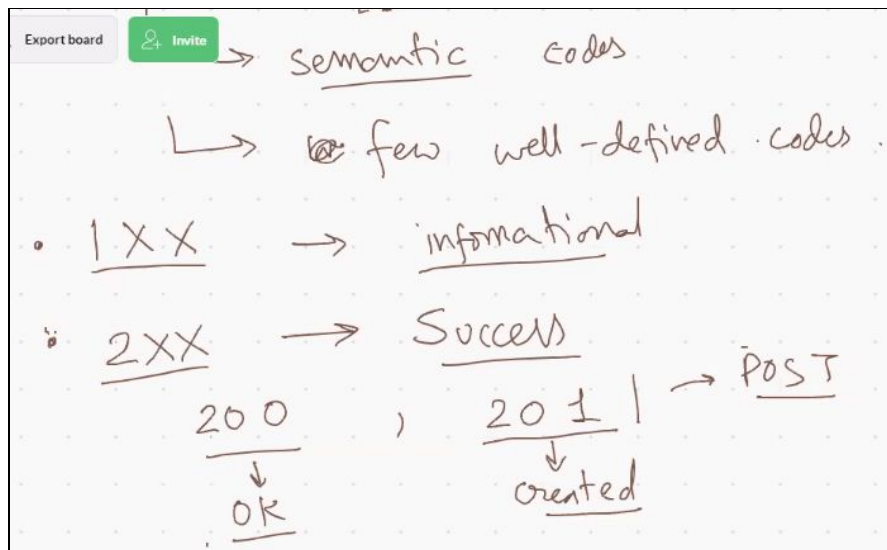 Export board
Invite
→ semantic codes
↳ few well-defined codes.
• 1XX → infomational
• 2XX → Success
200 , 201 | → POST
↓ ↓
OK created